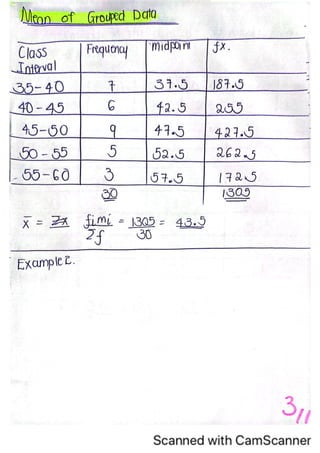 Mean of Grouped Data
Class Interval Frequency midpoint fx.
35-40 7 37.5 187.5
40-45 6 42.5 255
45-50 9 47.5 427.5
50-55 5 52.5 262.5
55-60 3 57.5 172.5
30 1305
x̄ = Σx fimi = 1305 = 43.5
Σf 30
Example 2.
3/11
Scanned with CamScanner